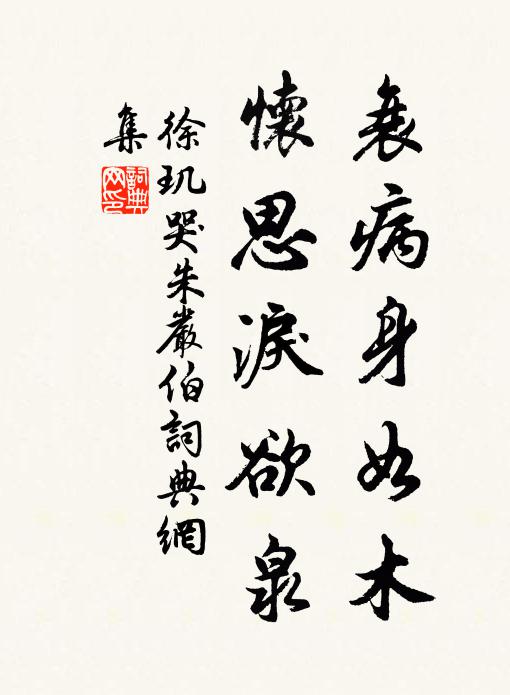 衰病身如木
懷思淚欲泉
徐玑哭朱嚴伯詞典網
集
詞典网印